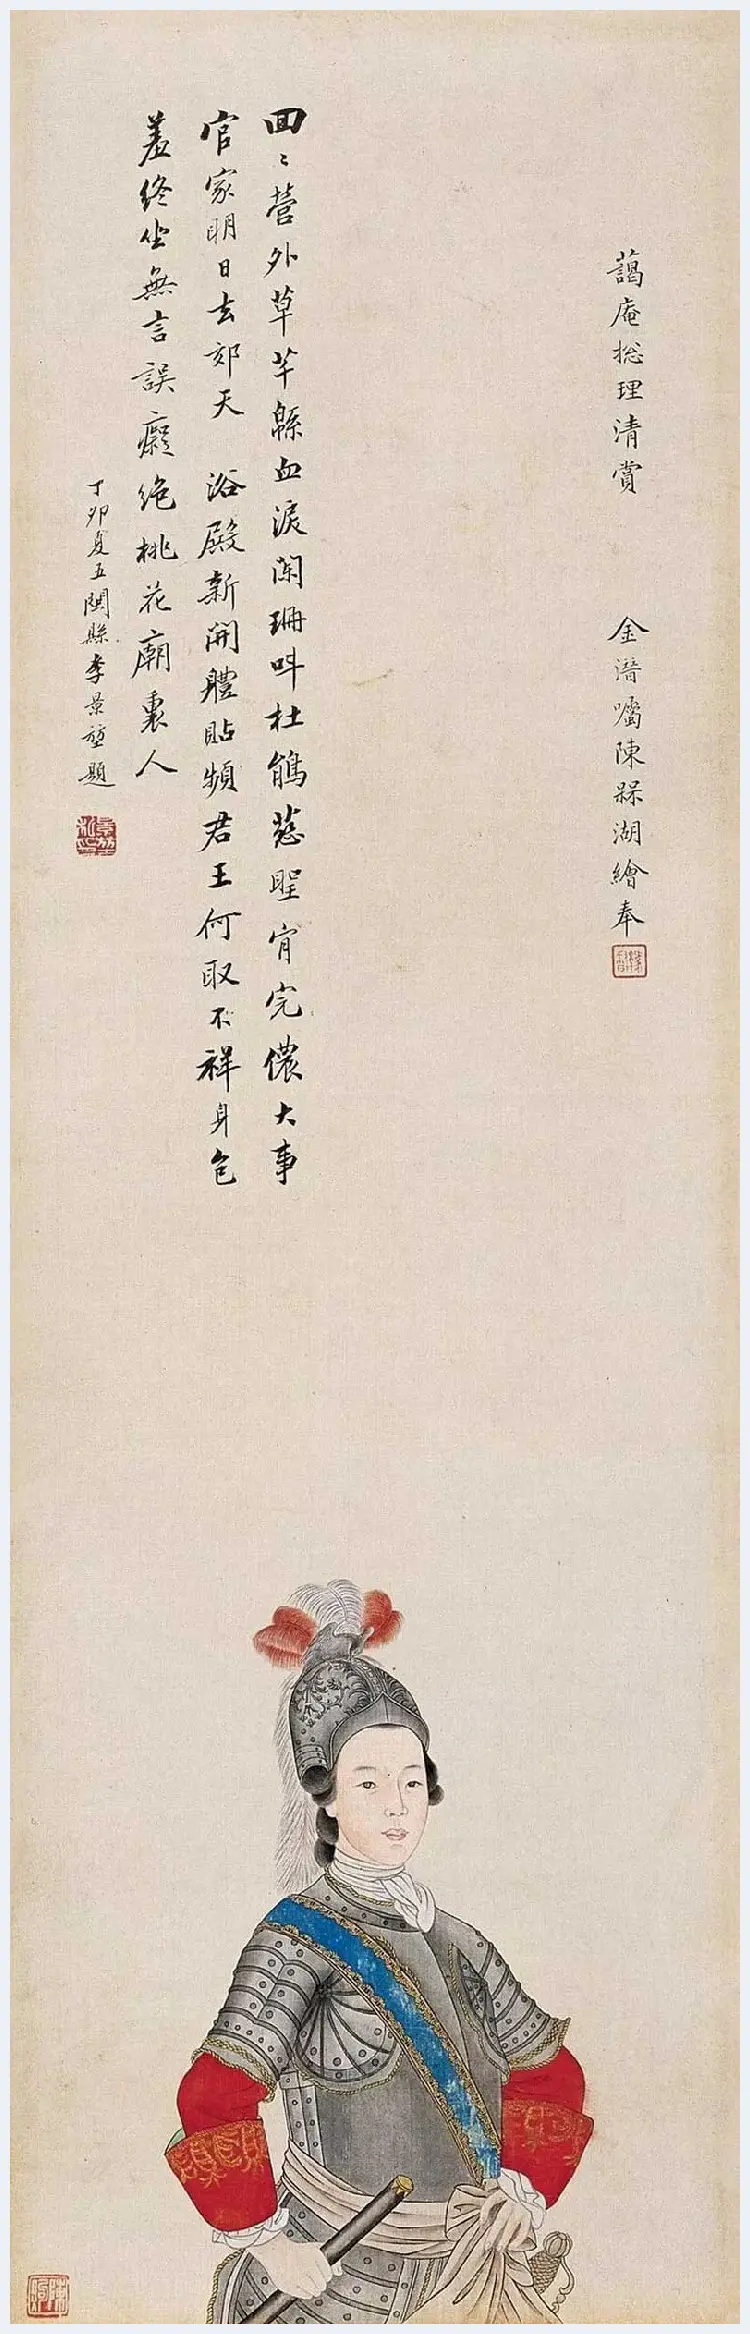 藹庵総理清賞 金潛囑陳槑湖繪奉
回〻營外草芊緜血淚闌珊叫杜鵑慈聖宵完儂大事
官家明日去郊天 浴殿新開體貼頻君王何取不祥身色
羞終坐無言誤癡絕桃花廟裏人
丁卯夏五閩縣李景堃題